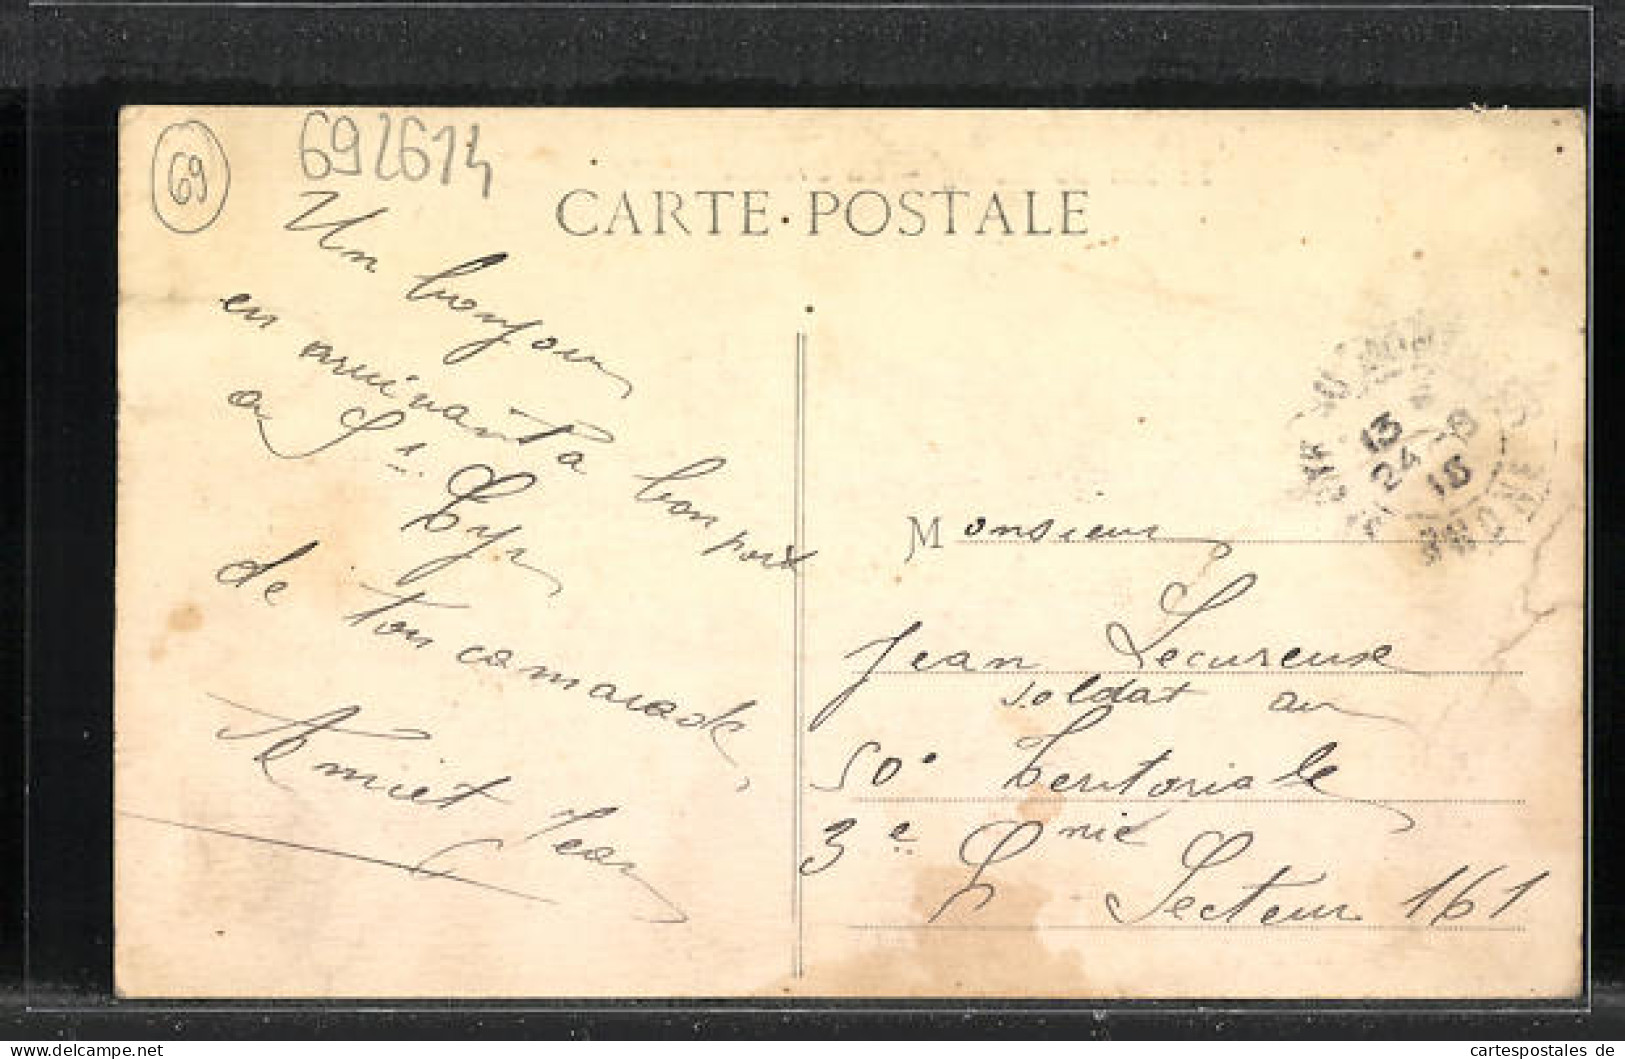 69
692614
CARTE POSTALE
Un bonjour
en arrivant a bon port
a St Cyr
de ton camarade,
Amiet Jean
Monsieur
Jean Lecureuse
soldat au
50e territoriale
3e Cnie
Secteur 161
13
24 -8
16
RHONE
delcampe.net
cartespostales de